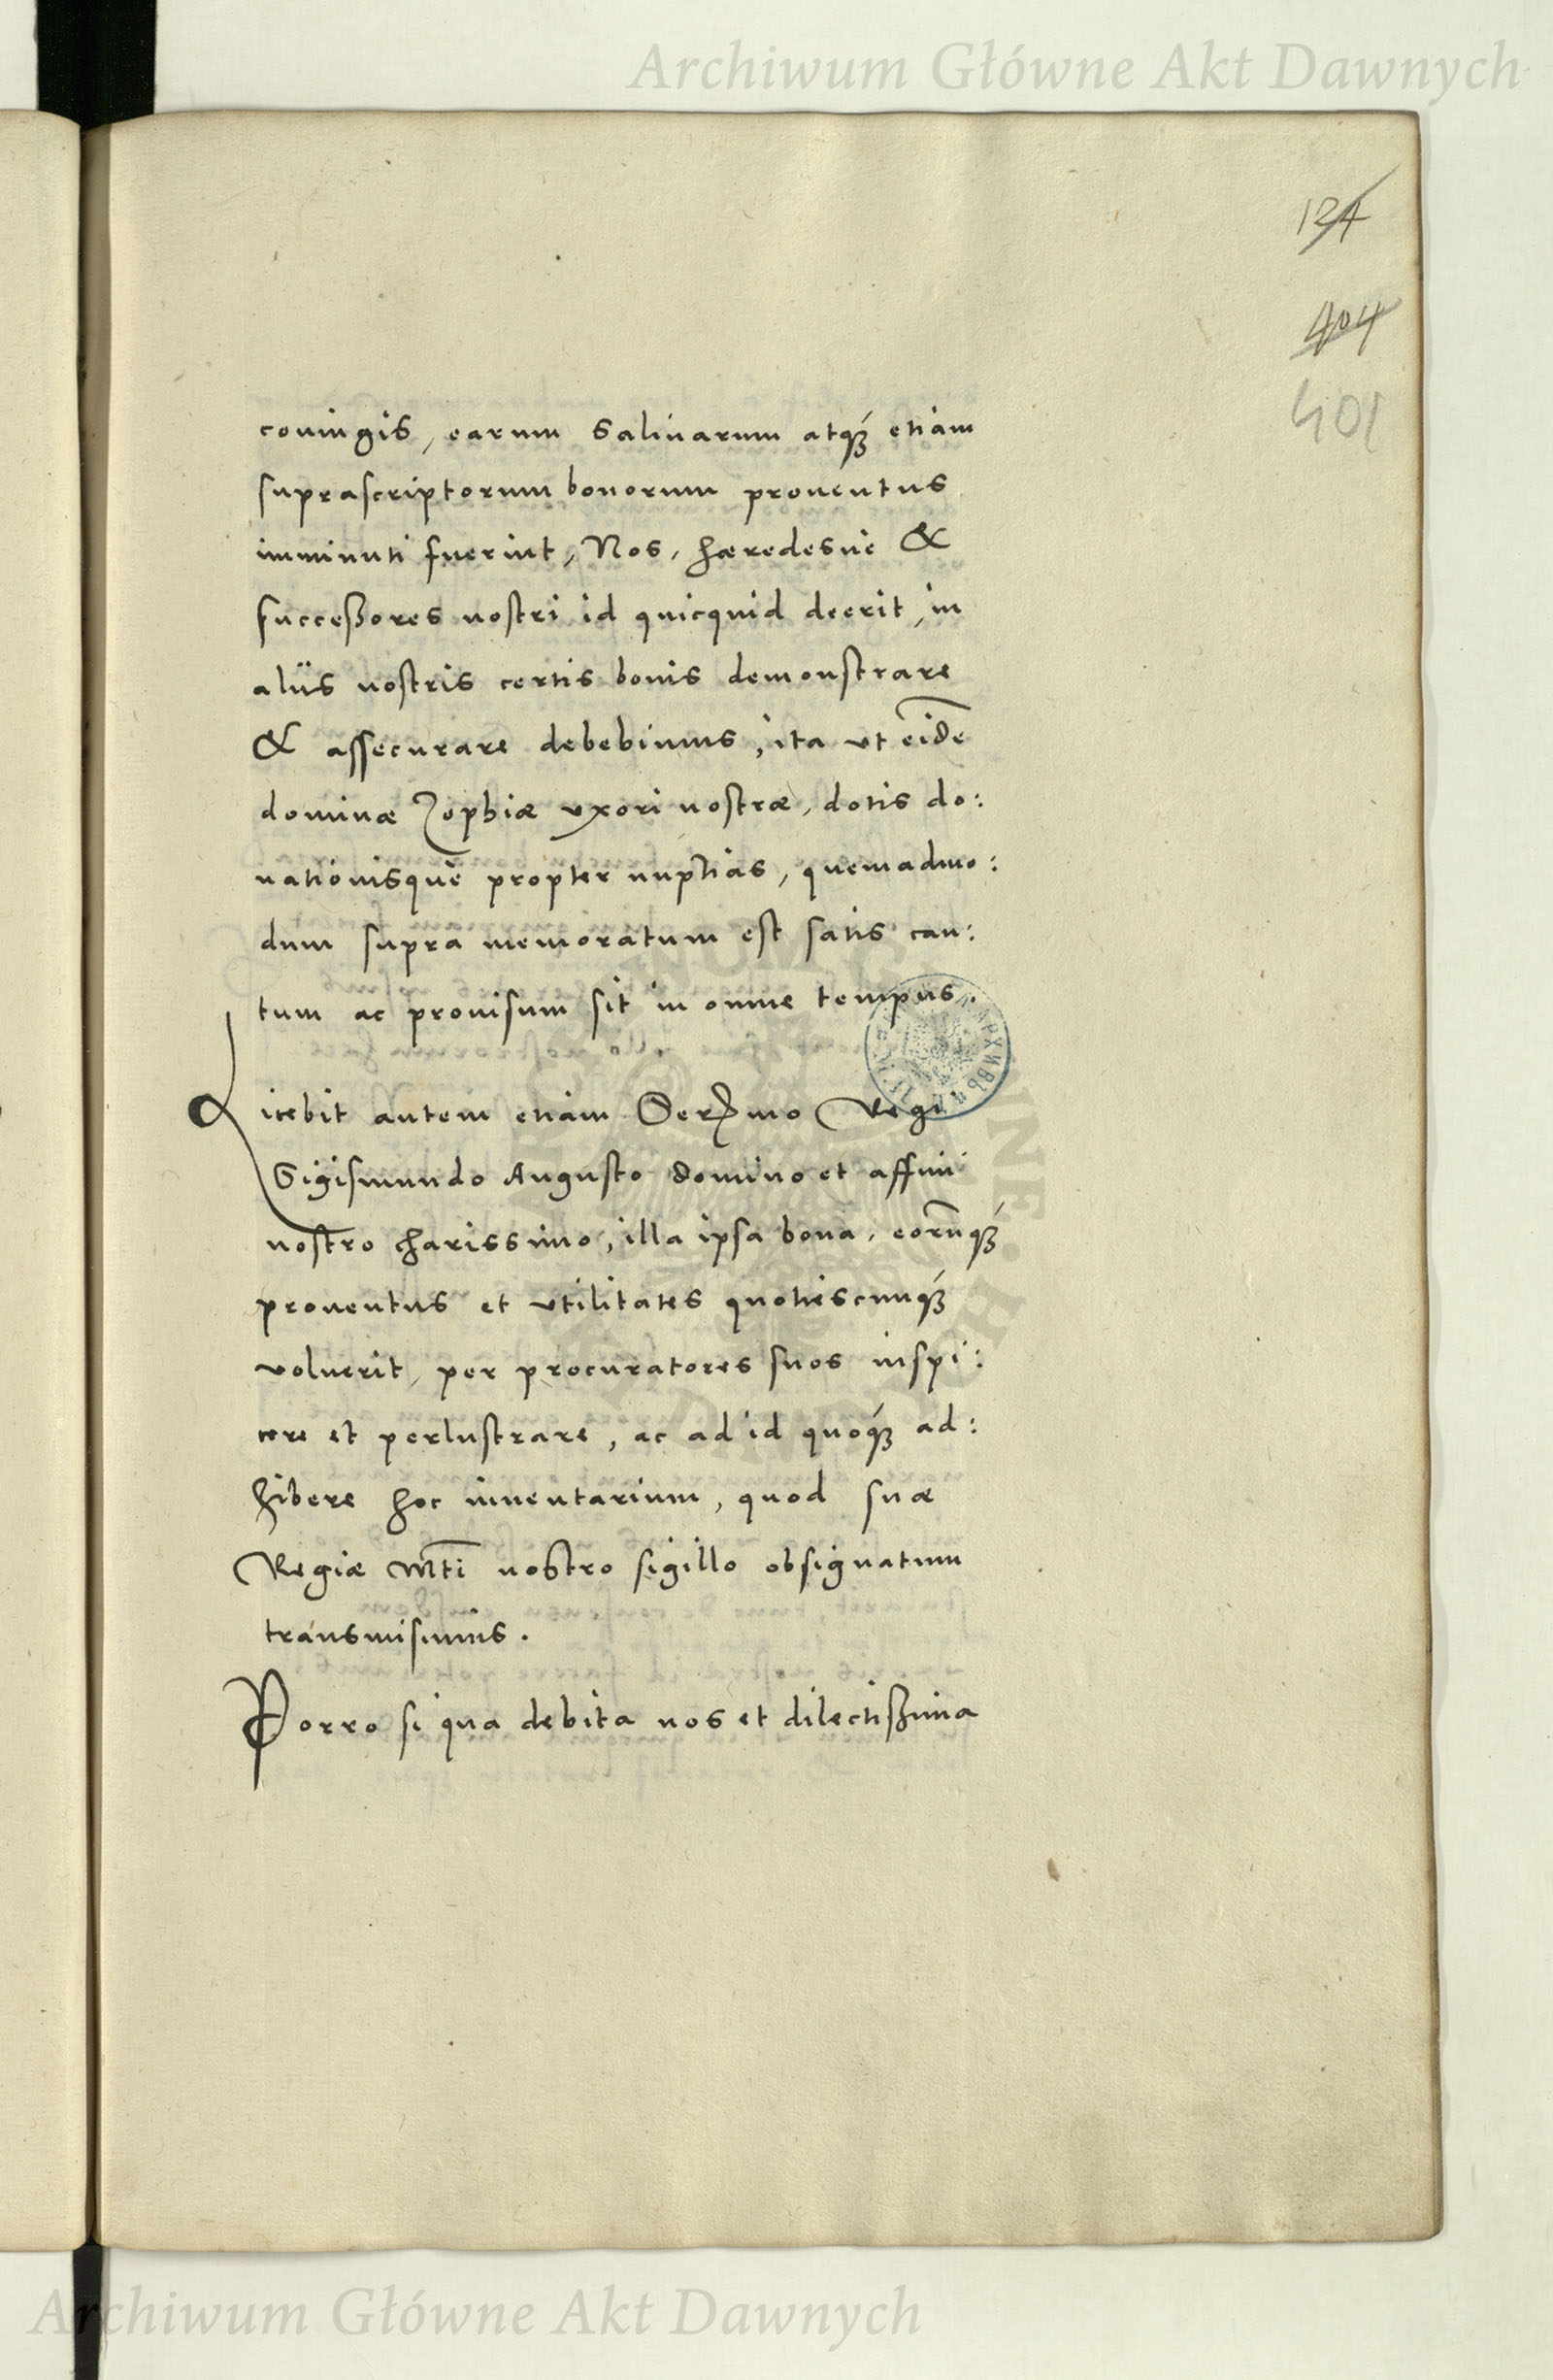 Archiwum Główne Akt Dawnych
124
404
401
coningis, earum Salinarum atqꝫ etiam
suprascriptorum bonorum prouentus
imminuti fuerint, Nos, hæredesue &
successores nostri id quicquid deerit, in
aliis nostris certis bonis demonstrare
& assecurare debebimus, ita vt eidē
dominæ Zophiæ vxori nostræ, dotis do:
nationisque propter nuptias, quemadmo:
dum supra memoratum est satis cau:
tum ac prouisum sit in omne tempus.
Licebit autem etiam Serꝫmo Regi
Sigismundo Augusto domino et affini
nostro charissimo, illa ipsa bona, eorūqꝫ
prouentus et vtilitates quotiescunqꝫ
voluerit, per procuratores suos inspi:
cere et perlustrare, ac ad id quoqꝫ ad:
hibere hoc inuentarium, quod suæ
Regiæ Mti̅ nostro sigillo obsignatum
transmisimus.
Porro si qua debita nos et dilectissima
Archiwum Główne Akt Dawnych